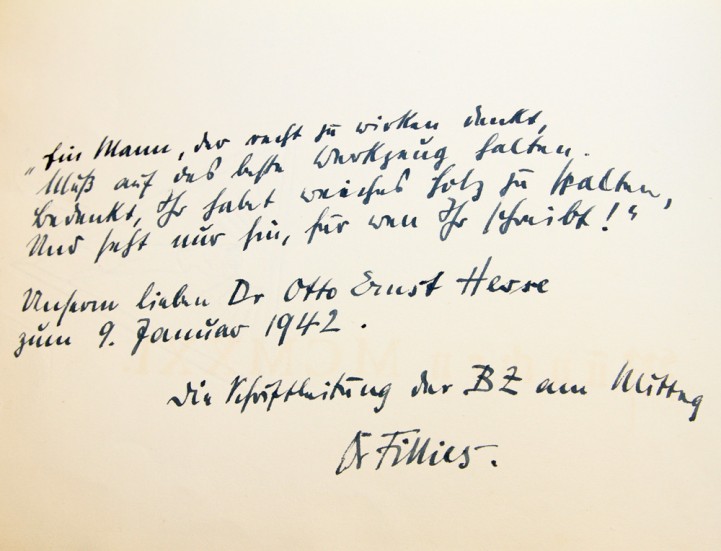 „Ein Mann, der recht zu wirken denkt,
Muß auf das beste Werkzeug halten.
Bedenkt, Ihr habt weiches Holz zu spalten,
Und seht nur hin, für wen Ihr schreibt!“
Unserm lieben Dr Otto Ernst Hesse
zum 9. Januar 1942.
Die Schriftleitung der BZ am Mittag
Dr Fillies.